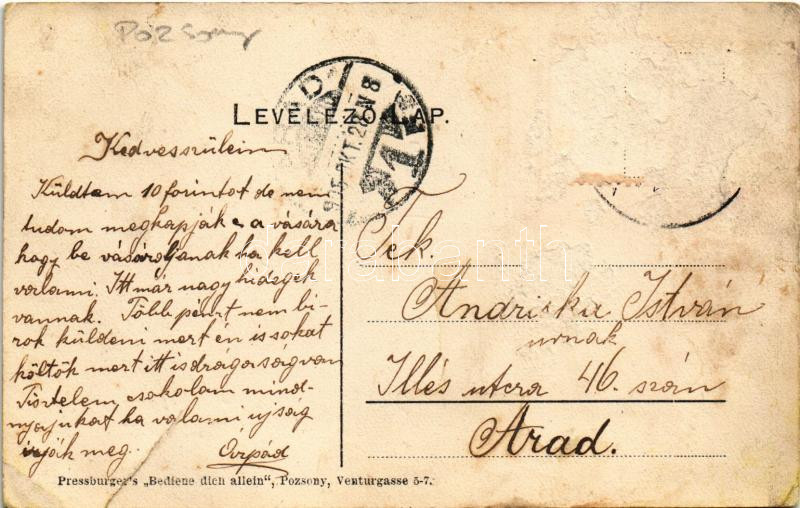 Pozsony
LEVELEZŐ-LAP.
ARAD
915 OKT. 2 N 8
Kedvesszüleim
Küldtem 10 forintot de nem
tudom megkapják e a vására
hogy be vásároljanak ha kell
valami. Itt már nagy hidegek
vannak. Több pénzt nem bi-
rok küldeni mert én is sokat
költök mert itt is drágaság van
Tisztelem csokolam mind-
nyájukat ha valami ujság
irják meg. Árpád
Tek.
Andriska István
urnak
Illés utcza 46. szám
Arad.
Pressburger's „Bediene dich allein", Pozsony, Venturgasse 5-7.